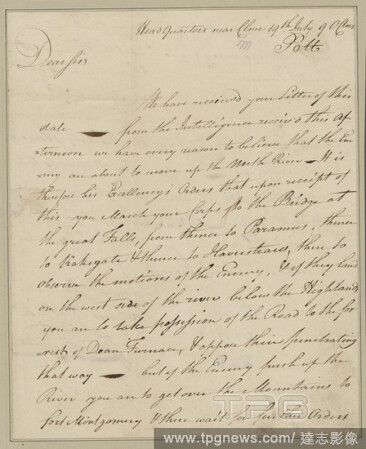 Head Quarters near Clove 19th July 9 OClock
Dear Sir
We have received your Letter of this
date — from the Intelligence received this Af-
ternoon we have every reason to believe that the Ene
my are about to move up the North River — It is
therefore his Excellency's Orders that upon receipt of
this you March your Corps to the Bridge at
the great Falls, from thence to Paramus, thence
to Kakegate & thence to Haverstraw, there to
observe the motions of the Enemy, & if they land
on the west side of the river below the Highlands
you are to take possession of the Road to the for
rest of Dean Furnace, & oppose their penetrating
that way — but if the Enemy push up the
River you are to get over the Mountains to
fort Montgomery & there wait for further Orders
TPG
www.tpgnews.com / 達志影像